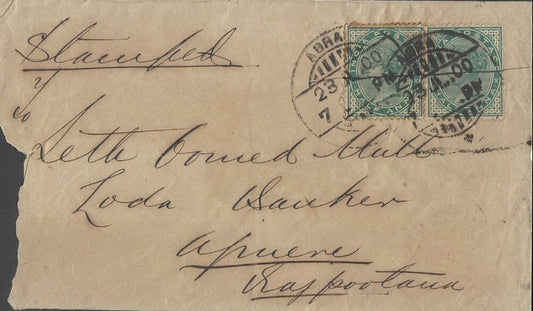 Stamped
To
Seth Oomed Mull
Loda Banker
Ajmere
Rajpootana
23 JU 00
7 PM